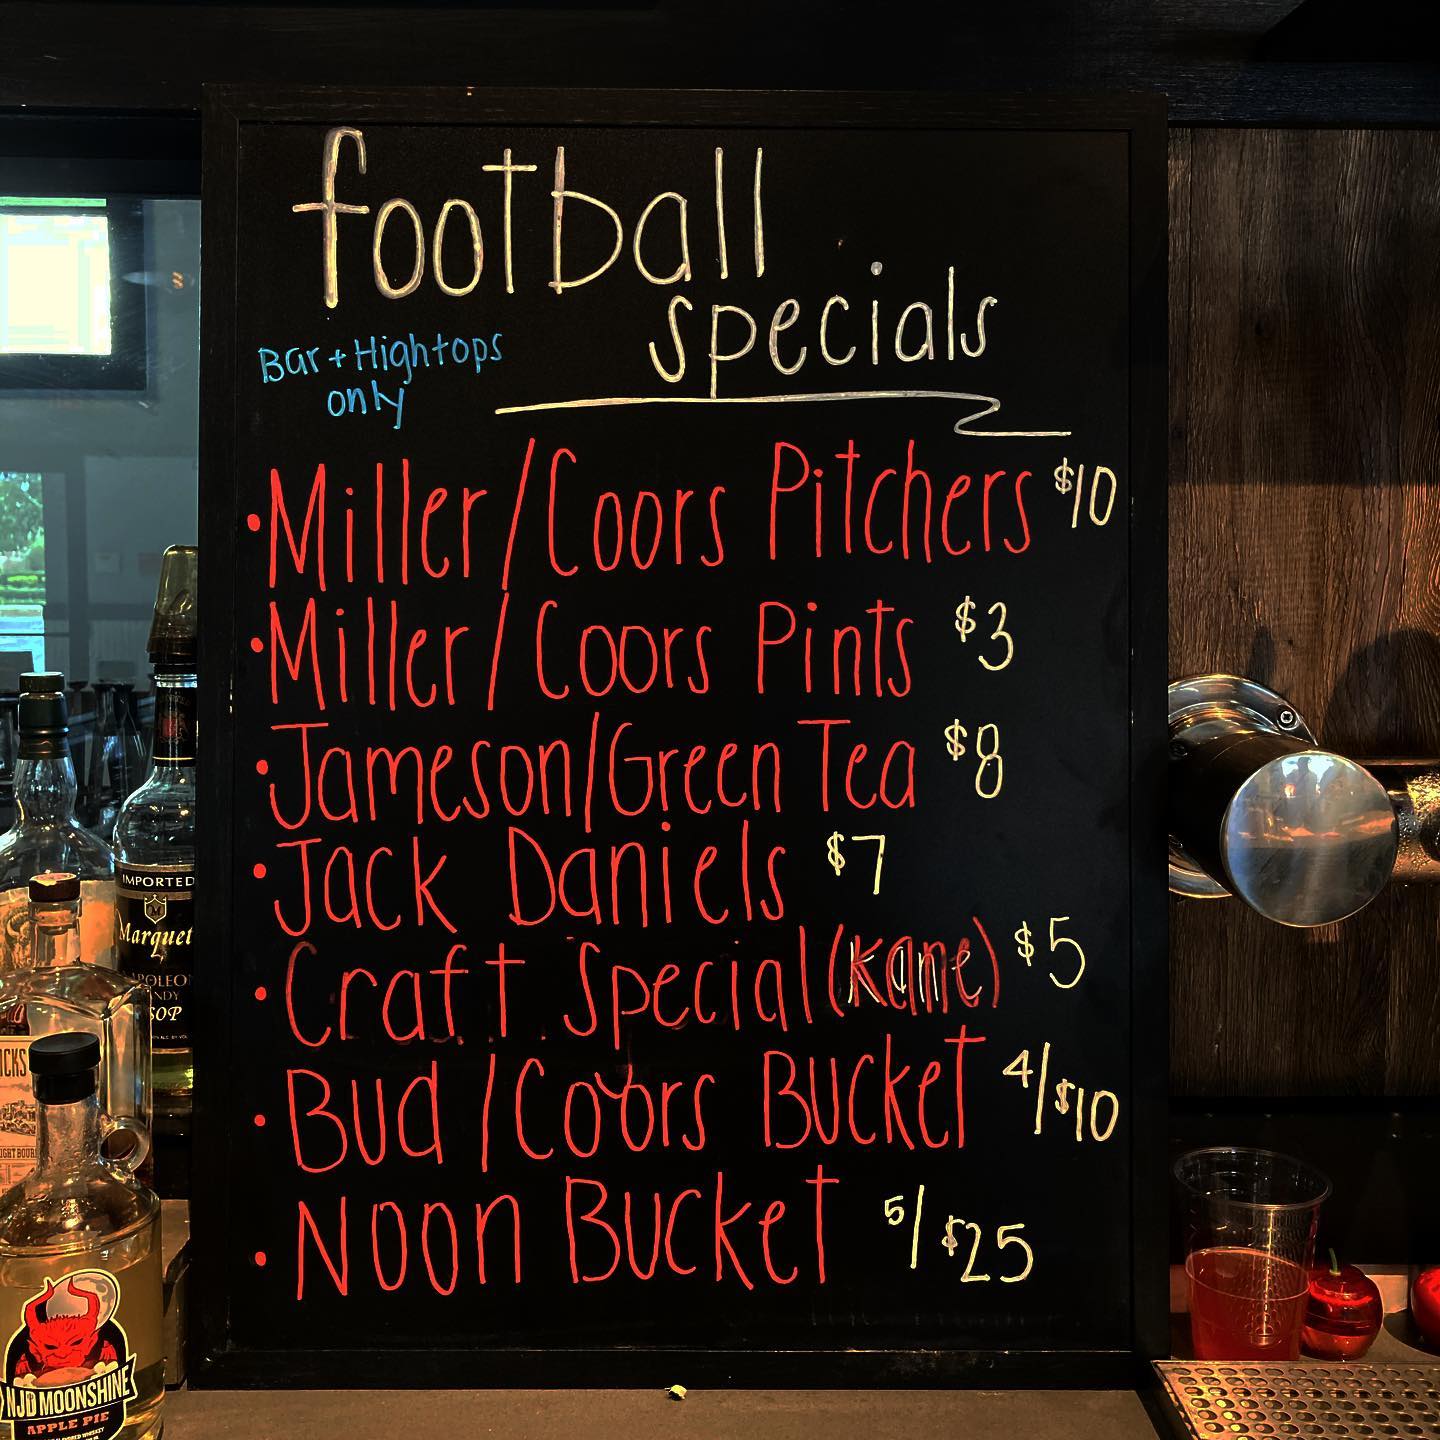 football
specials
Bar + Hightops
only
• Miller/Coors Pitchers $10
• Miller/Coors Pints $3
• Jameson/Green Tea $8
• Jack Daniels $7
• Craft Special (Kane) $5
• Bud/Coors Bucket 4/$10
• Noon Bucket 5/$25
IMPORTED
Marquet
SOP
NJD MOONSHINE
APPLE PIE